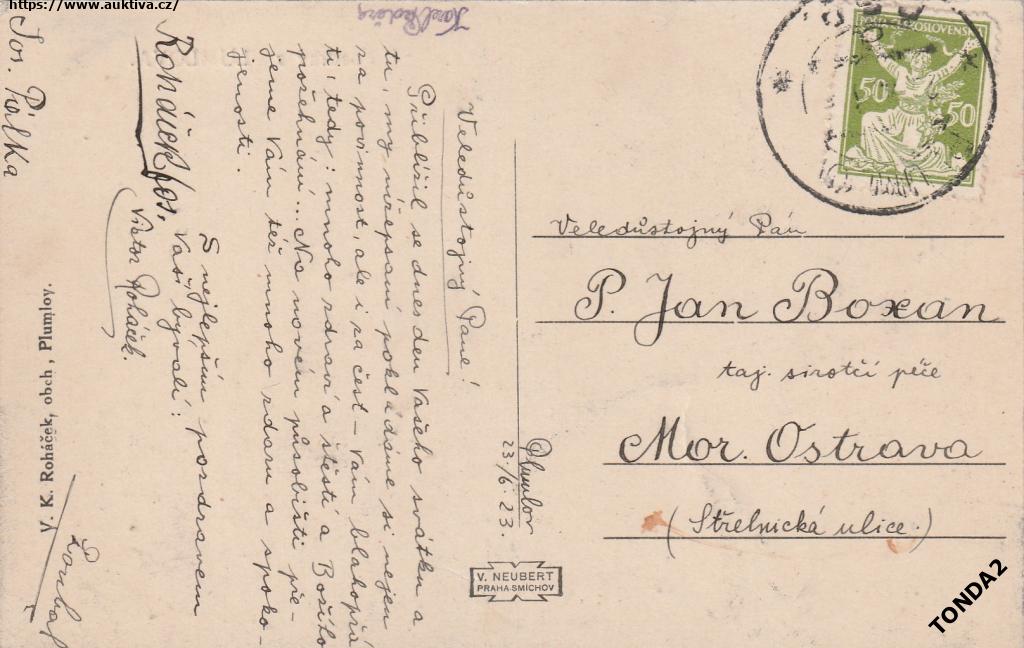 https://www.auktiva.cz/
Plumlov
23./6. 23.
Veledůstojný Pane!
Přiblížil se dnes den Vašeho svátku a
tu, my níže psaní pokládáme si nejen
za povinnost, ale i za čest – Vám blahopřá
ti, tedy: mnoho zdraví a štěstí a Božího
požehnání... Na novém působišti pře-
jeme Vám též mnoho zdaru a spoko-
jenosti.
S nejlepším pozdravem
Vaši bývalí:
Viktor Roháček.
Roháček Jos.
Jos. Pálka
Karel
V. K. Roháček, obch, Plumlov.
V. NEUBERT
PRAHA-SMÍCHOV
50 50
Veledůstojný Pán
P. Jan Boxan
taj. sirotčí péče
Mor. Ostrava
(Střelnická ulice.)
TONDA2